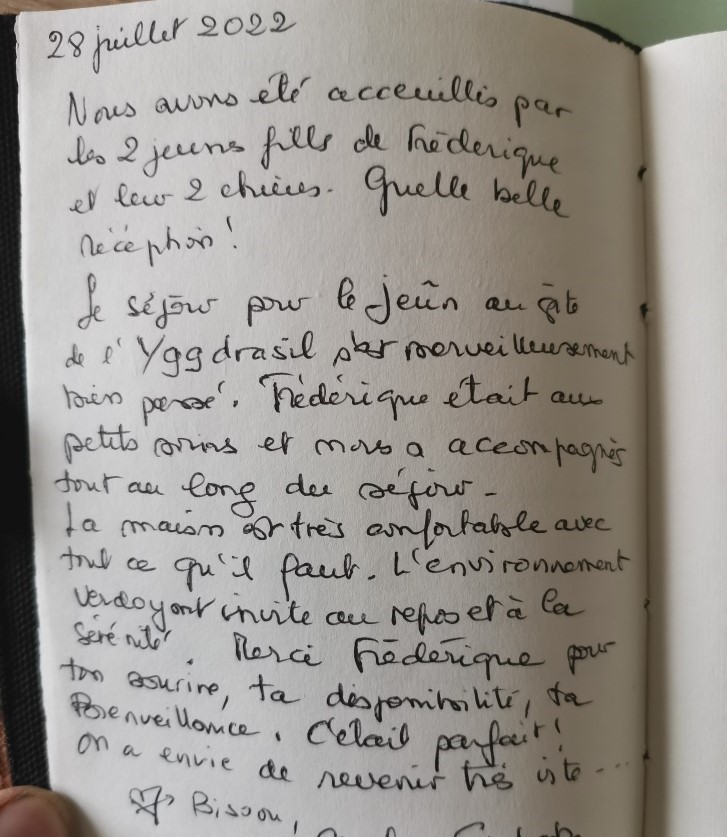 28 juillet 2022
Nous avons été acceuillis par
les 2 jeunes filles de Frédérique
et leur 2 chiens. Quelle belle
réception !
Le séjour pour le jeûn au gîte
de l'Yggdrasil s'est merveilleusement
bien passé. Frédérique était aux
petits soins et nous a accompagnés
tout au long du séjour -
La maison est très confortable avec
tout ce qu'il faut. L'environnement
verdoyant invite au repos et à la
sérénité. Merci Frédérique pour
ton sourire, ta disponibilité, ta
Bienveillance. C'était parfait !
On a envie de revenir très vite ...
Bisou,